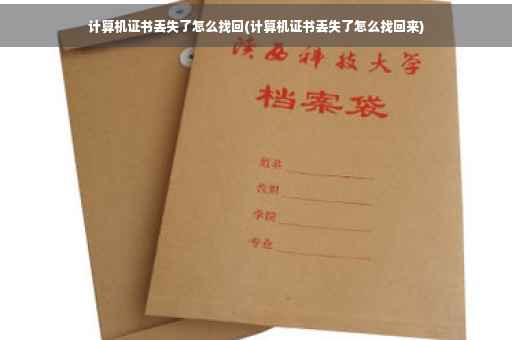 计算机证书丢失了怎么找回(计算机证书丢失了怎么找回来)
陕西科技大学
档案袋
姓名
学院
专业